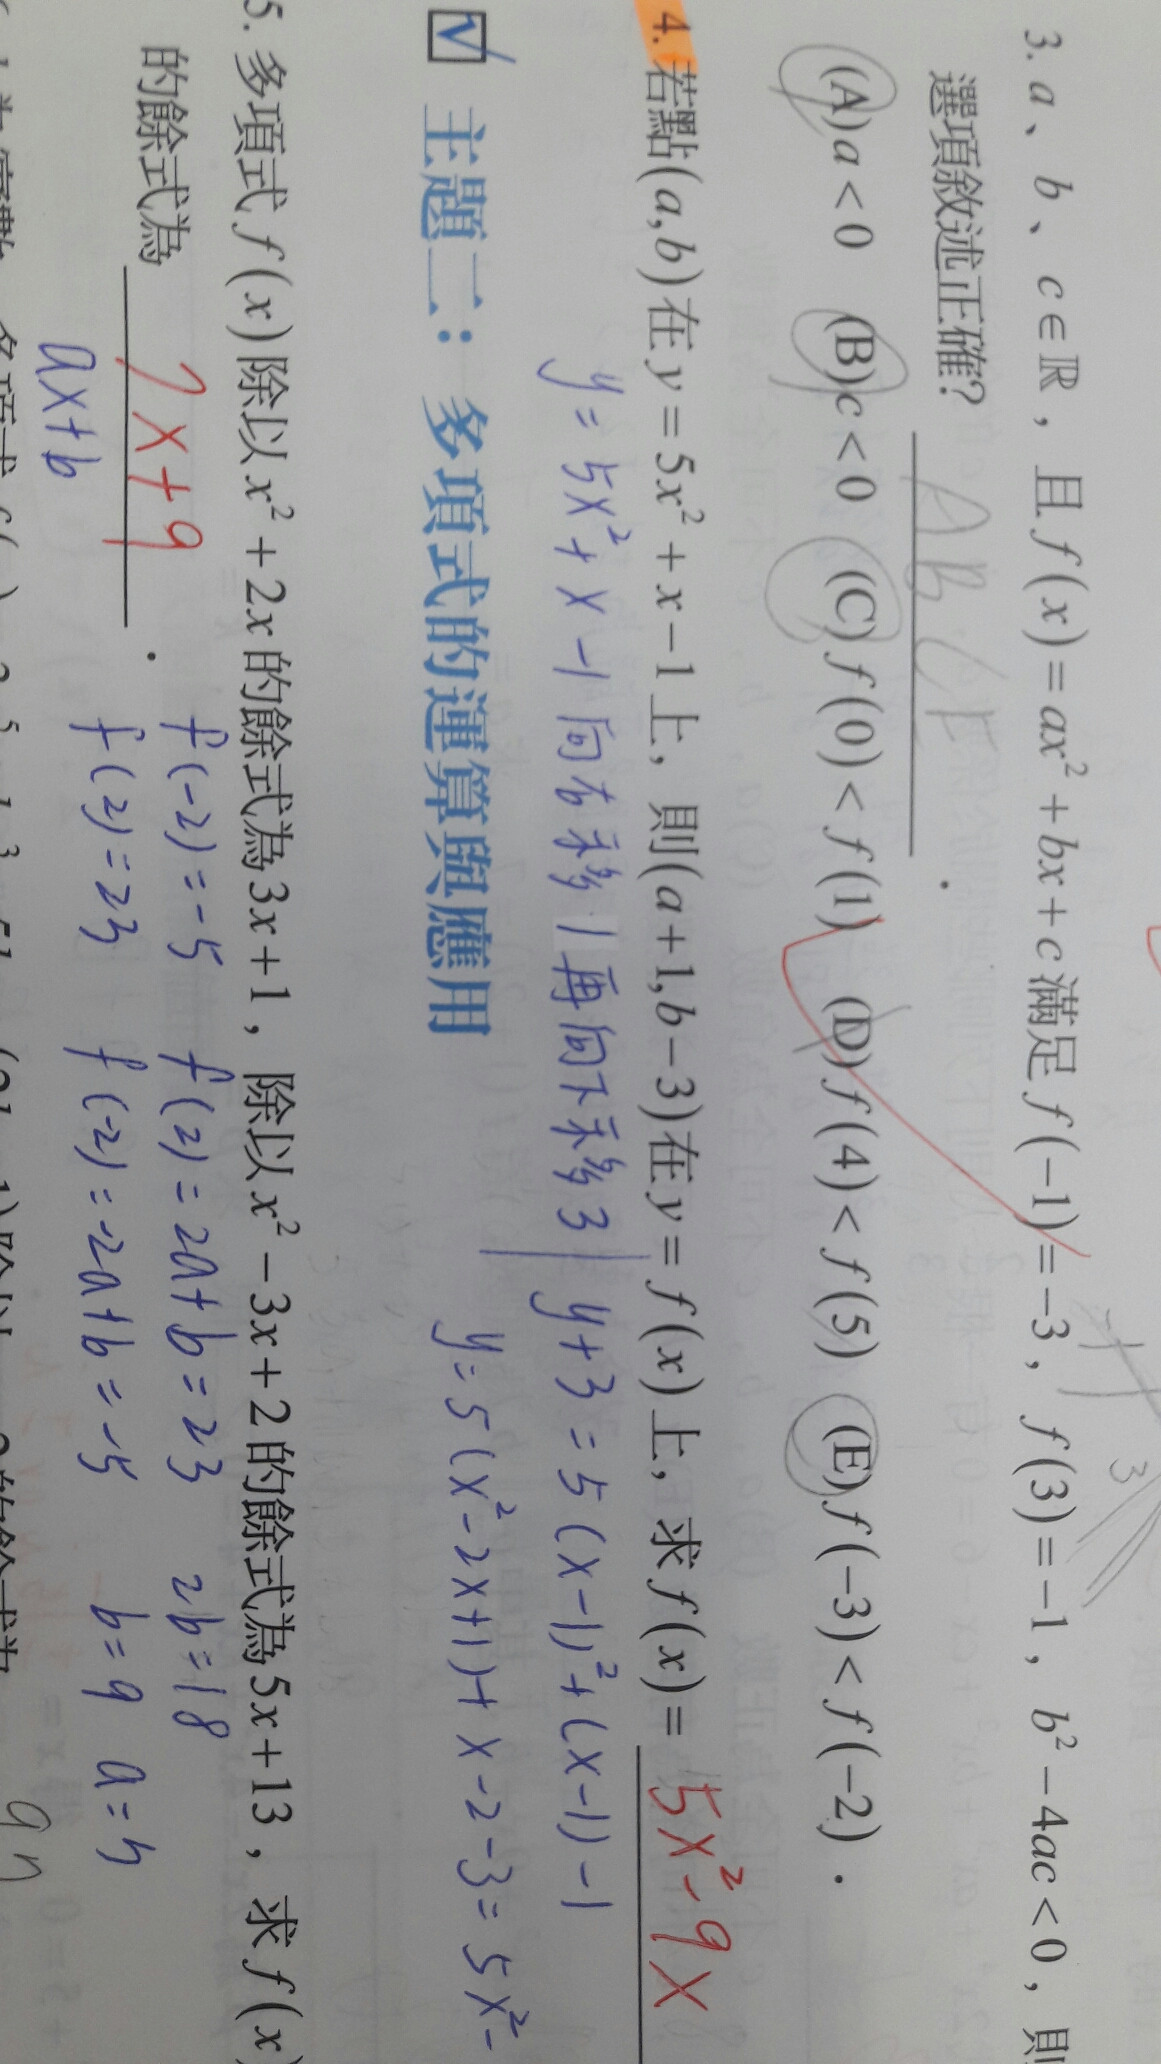 3. a、b、c∈ℝ，且 f(x)=ax²+bx+c 滿足 f(-1)=-3，f(3)=-1，b²-4ac<0，則
選項敘述正確？ ABCE．
(A) a<0 (B) c<0 (C) f(0)<f(1) (D) f(4)<f(5) (E) f(-3)<f(-2)．
3
4. 若點(a,b)在 y=5x²+x-1上，則(a+1,b-3)在 y=f(x)上，求 f(x)= 5x²-9x
y=5x²+x-1向右移1再向下移3 y+3=5(x-1)²+(x-1)-1
y=5(x²-2x+1)+x-2-3=5x²-
主題二：多項式的運算與應用
5. 多項式 f(x)除以 x²+2x 的餘式為3x+1，除以 x²-3x+2 的餘式為5x+13，求 f(x)
的餘式為 7x+9．
f(-2)=-5 f(2)=2a+b=23 2b=18
f(2)=23 f(-2)=-2a+b=-5 b=9 a=
ax+b